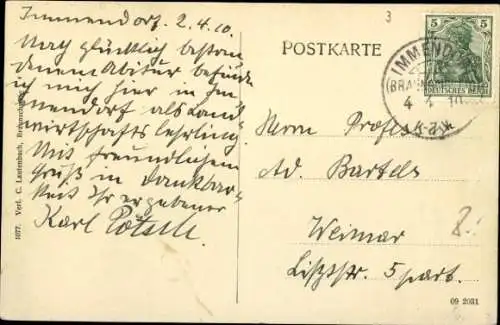 Immendorf. 2.4.10.
Nach glücklich bestan-
denem Abitur befinde
ich mich hier in Im
mendorf als Land
wirtschaftslehrling.
Mit freundlichem
Gruß in Dankbar-
keit Ihr ergebener
Karl
1077. Verl. C. Lautenbach, Braunschweig.
3
POSTKARTE
5 5
DEUTSCHES REICH
IMMENDORF
(BRAUNSCHW
4 4 10
Herrn Professor
Ad. Bartels
Weimar
Lisztstr. 5 part.
8.-
09 2031